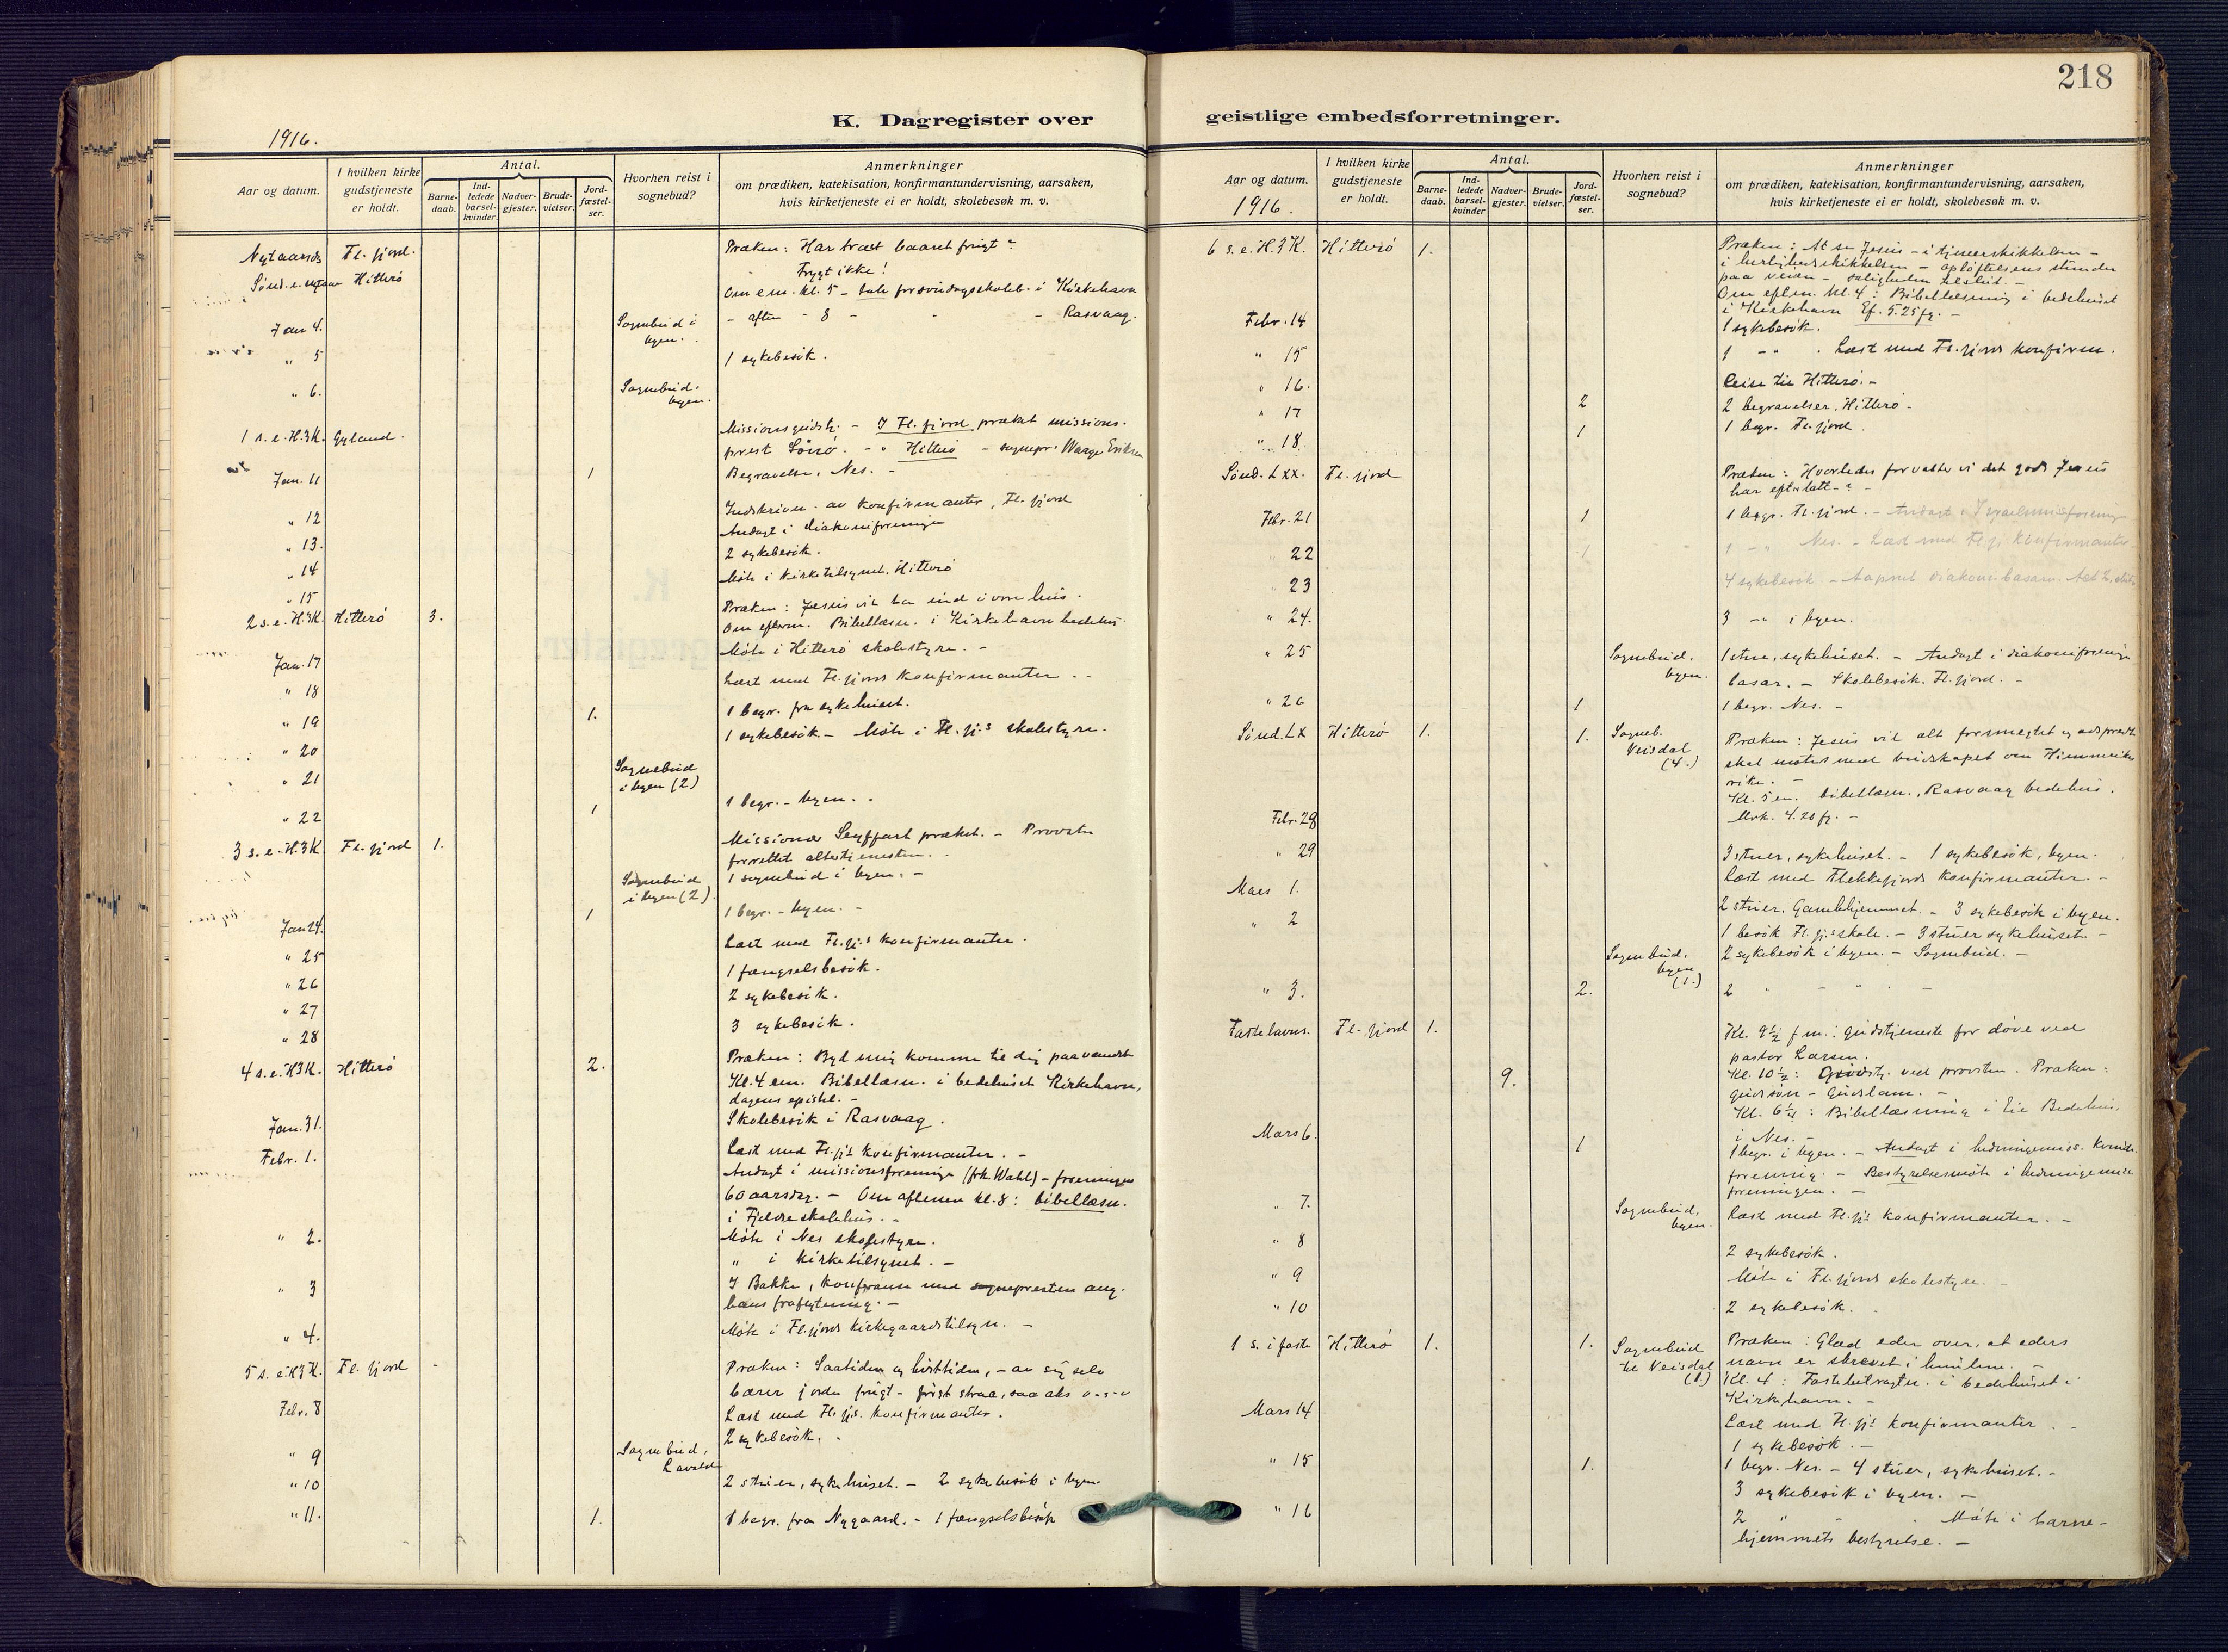 218
K. Dagregister over
geistlige embedsforretninger.
1916.
Aar og datum.
I hvilken kirke
gudstjeneste
er holdt.
Antal.
Barne-
daab.
Ind-
ledede
barsel-
kvinder
Nadver-
gjester.
Brude-
vielser.
Jord-
fæstel-
ser.
Hvorhen reist i
sognebud?
Anmerkninger
om prædiken, katekisation, konfirmantundervisning, aarsaken,
hvis kirketjeneste ei er holdt, skolebesøk m. v.
Nytaarsdg Fl. fjord. Præken: Har træet baaret frugt?
Frygt ikke!
Sönd. e. nytaar Hitterö Om em. kl. 5 - tale for søndagsskoleb. i Kirkehavn
- aften - 8 - " - Rasvaag.
Jan 4. Sognebud i
byen.
" 5 1 sykebesök.
" 6. Sognebud.
byen.
1 s. e. H.3K. Gyland. Missionsgudstj. - I Fl. fjord præket missions-
prest - " Hitterö - sognepr.
Jan. 11 1 Begravelse, Nes. -
" 12 Indskrivn. av konfirmanter, Fl. fjord
Andagt i diakoniforeninge
" 13. 2 sykebesök.
" 14 Möte i kirketilsynet. Hitterö
" 15
2 s. e. H.3K. Hitterö 3. Præken: Jesus vil ind i vore hus.
Om efterm. Bibellæsn. i Kirkehavn bedehus.
Jan. 17 Möte i Hitterö skolestyre. -
" 18 Læst med Fl. fjords konfirmanter. -
" 19 1. 1 begr. fra sykehuset.
" 20 1 sykebesök. - Möte i Fl. fj.s skolestyre.
" 21 Sognebud
i byen (2)
" 22 1 1 begr. - byen.
3 s. e. H.3K Fl. fjord 1. Missionær Seyffart præket. - Provsten
forrettet altertjenesten. -
Sognebud
i byen (2). 1 sognebud i byen. -
Jan 24. 1 1 begr. - byen. -
" 25 Læst med Fl. fj.s konfirmanter.
" 26 1 fængselsbesök.
" 27 2 sykebesök.
" 28 3 sykebesök.
4 s. e. H3K. Hitterö 2. Præken: Byd mig komme til dig paa vandet
Kl. 4 em. Bibellæsn. i bedehuset Kirkehavn,
dagens epistel. -
Jan. 31. Skolebesök i Rasvaag.
Febr. 1. Læst med Fl. fj.s konfirmanter. -
Andagt i missionsforeninge (frk. Wahl) - foreningens
60 aarsdag. - Om aftenen kl. 8: bibellæsn.
i Fjeldse skolehus. -
" 2. Möte i Nes skolestyre.
" i kirketilsynet. -
" 3 I Bakke, konferanse med sognepresten ang.
hans fraflytning. -
" 4. Möte i Fl. fjords kirkegaardstilsyn. -
5 s. e. H3K. Fl. fjord - Præken: Saatiden og hösttiden, - av sig selv
bærer jorden frugt - först straa, saa aks o-s-v
Febr. 8 Læst med Fl. fj.s. konfirmanter.
2 sykebesök. -
" 9 Sognebud,
" 10 2 stuer, sykehuset. - 2 sykebesök i byen.
" 11. 1. 1 begr. fra Nygaard. - 1 fængselsbesök
Aar og datum.
1916.
I hvilken kirke
gudstjeneste
er holdt.
Antal.
Barne-
daab.
Ind-
ledede
barsel-
kvinder
Nadver-
gjester.
Brude-
vielser.
Jord-
fæstel-
ser.
Hvorhen reist i
sognebud?
Anmerkninger
om prædiken, katekisation, konfirmantundervisning, aarsaken,
hvis kirketjeneste ei er holdt, skolebesøk m. v.
6 s. e. H.3K. Hitterö 1. Præken: At se Jesus - i tjenerskikkelsen -
i herlighedsskikkelsen - oplöftelsens stunder
paa veien - salighedens beslut. -
Om efterm. kl. 4: Bibellæsning i bedehuset
i Kirkehavn Ef. 5.25 fg. -
Febr. 14 1 sykebesök.
" 15 1 - " . Læst med Fl. fjords konfirm.
" 16. Reise til Hitterö. -
" 17 2 2 begravelser, Hitterö.
" 18. 1 1 begr. Fl. fjord.
Sönd. LXX. Fl. fjord Præken: Hvorledes forvalter vi det gods Jesus
har efterlatt - ? -
Febr. 21 1 1 begr. Fl. fjord. - Andagt i Israelsmissforening
" 22 1 1 - " Nes. - Læst med Fl. fj. konfirmanter
" 23 4 sykebesök - Aapnet diakoni-basar.
" 24. 3 - " i byen.
" 25 Sognebud,
byen. 1 stue, sykehuset. - Andagt i diakoniforenings
basar. - Skolebesök. Fl. fjord. -
" 26 1 1 begr. Nes. -
Sönd. LX Hitterö 1. 1. Sogneb.
Veisdal
(4.) Præken: Jesus vil alt
skal mötes med budskapet om Himmeriks
rike. -
Kl. 5 em. bibellæsn., Rasvaag bedehus.
Mrk. 4.20 fg. -
Febr. 28
" 29 3 stuer, sykehuset. - 1 sykebesök, byen.
Læst med Flekkefjords konfirmanter. -
Mars 1. 2 stuer, Gamlehjemmet. - 3 sykebesök i byen.
" 2 1 besök Fl. fj.s skole. - 3 stuer sykehuset. -
Sognebud,
byen
(1.) 2 sykebesök i byen. - Sognebud. -
" 3. 2. 2 " - " -
Fastelavns. Fl. fjord 1. Kl. 9½ fm.: gudstjeneste for döve ved
pastor Larsen.
9. Kl. 10½: Gudstj. ved provsten. Præken:
gudssön - Gudslam. -
Kl. 6¼: Bibellæsning i Eie Bedehus,
i Nes. -
Mars 6. 1 1 begr. i byen. - Andagt i hedningemiss. kvinde-
forening. - Bestyrelsesmöte i hedningemiss
foreningen. -
" 7. Sognebud,
byen. Læst med Fl. fj.s konfirmanter. -
" 8 2 sykebesök.
" 9 Möte i Fl. fjords skolestyre. -
" 10 2 sykebesök. -
1 s. i faste Hitterö 1. 1. Sognebud
til Veisdal
(1) Præken: Glæd eder over, at eders
navn er skrevet i himlene. -
Kl. 4: Fastebetragtn. i bedehuset i
Kirkehavn. -
Mars 14 Læst med Fl. fj.s konfirmanter. -
1 sykebesök. -
" 15 1. 1 begr. Nes. - 4 stuer, sykehuset. -
3 sykebesök i byen. -
" 16 2 " - . Möte i barne-
hjemmets bestyrelse. -